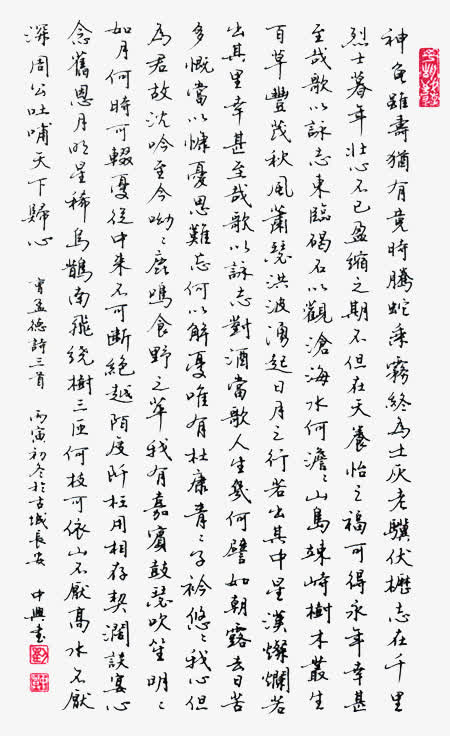 神龜雖壽猶有竟時騰蛇乘霧終為土灰老驥伏櫪志在千里
烈士暮年壯心不已盈縮之期不但在天養怡之福可得永年幸甚
至哉歌以詠志東臨碣石以觀滄海水何澹〻山島竦峙樹木叢生
百草豐茂秋風蕭瑟洪波湧起日月之行若出其中星漢燦爛若
出其里幸甚至哉歌以詠志對酒當歌人生幾何譬如朝露去日苦
多慨當以慷憂思難忘何以解憂唯有杜康青〻子衿悠〻我心但
為君故沈吟至今呦〻鹿鳴食野之苹我有嘉賓鼓瑟吹笙明〻
如月何時可輟憂從中來不可斷絕越陌度阡枉用相存契闊談宴心
念舊恩月明星稀烏鵲南飛繞樹三匝何枝可依山不厭高水不厭
深周公吐哺天下歸心
曹孟德詩三首 丙寅初冬於古城長安 中興書